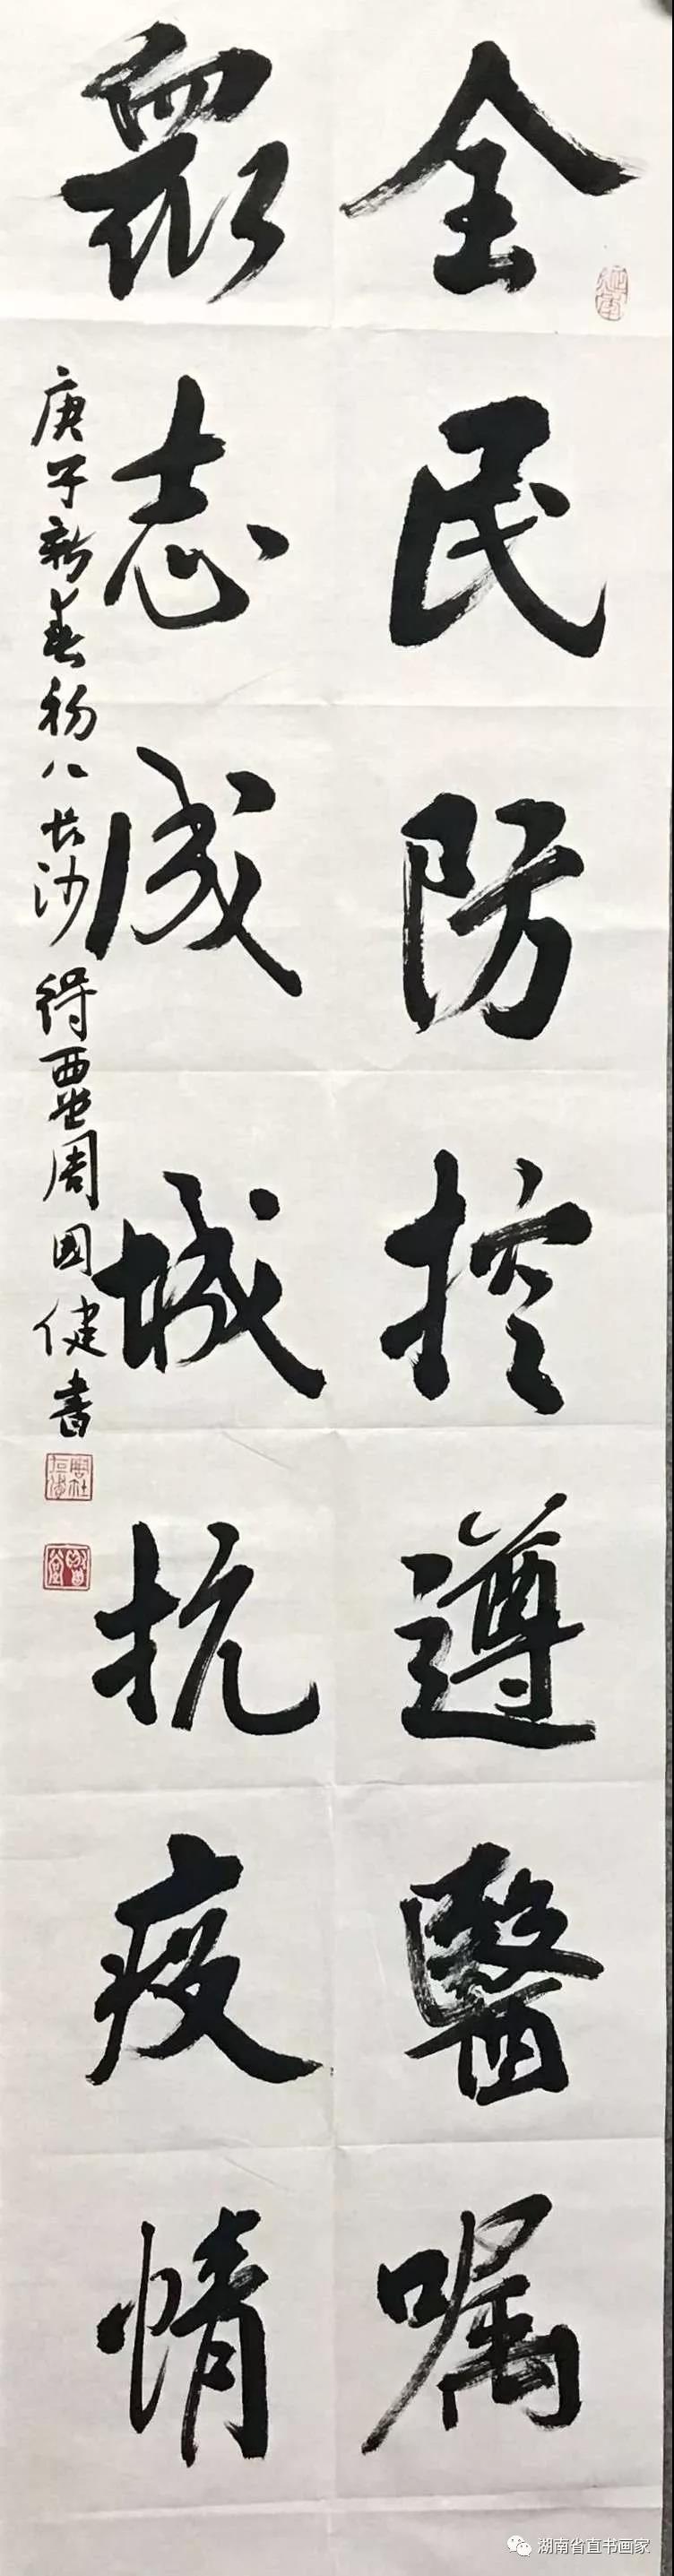 全民防控遵醫嘱
眾志成城抗疫情
庚子新春初八長沙得璽周國健書
湖南省直书画家